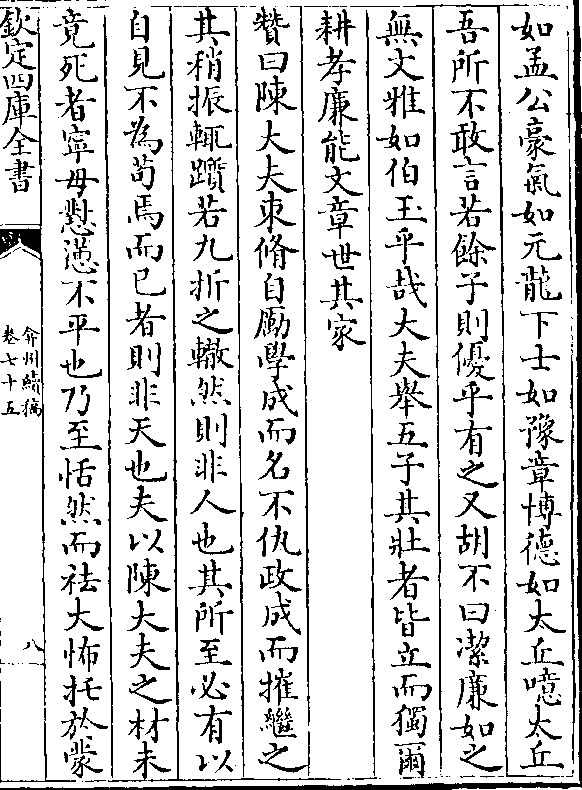 如孟公豪氣如元龍下士如豫章博德如太丘噫太丘
吾所不敢言若餘子則優乎有之又胡不曰潔廉如之
無文雅如伯玉乎哉大夫舉五子其壯者皆立而獨爾
耕孝廉能文章世其家
贊曰陳大夫束脩自厲學成而名不仇政成而摧繼之
其稍振輒躓若九折之轍然則非人也其所至必有以
自見不為茍焉而已者則非天也夫以陳大夫之材未
竟死者寜毋懟懣不平也乃至恬然而祛大怖托於蒙
欽定四庫全書
弇州續稿
卷七十五
八